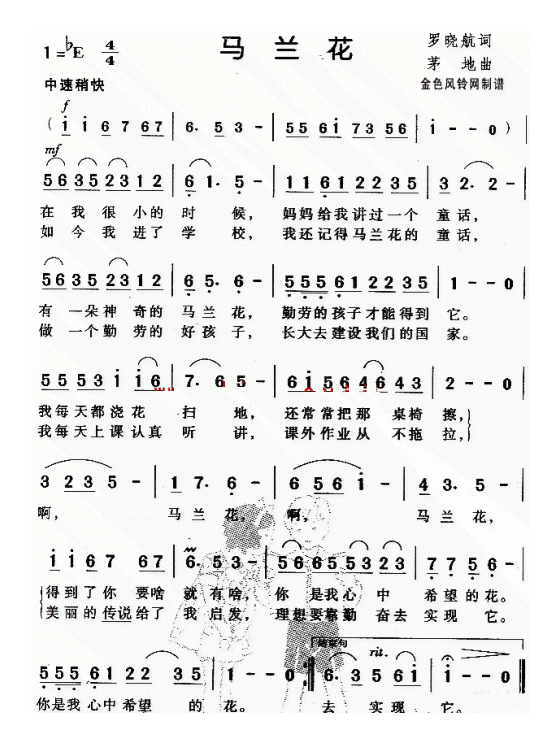 马兰花
1=♭E 4/4
罗晓航词
茅 地曲
中速稍快
金色风铃网制谱
f
( i i 6 7 67 | 6. 5 3 - | 55 6i 73 56 | i - - 0 )
mf
56 35 23 12 | 6 1. 5 - | 11 61 22 35 | 3 2. 2 -
在 我 很 小的 时 候, 妈妈给我讲过一个 童话,
如 今我 进了 学 校, 我还记得马兰花的 童话,
56 35 23 12 | 6 5. 6 - | 555 6 22 35 | 1 - - 0
有 一朵神 奇的 马兰 花, 勤劳的孩子才能得到 它。
做 一个勤 劳的 好孩 子, 长大去建设我们的国 家。
55 53 i i6 | 7. 6 5 - | 6i 56 46 43 | 2 - - 0
我每天都浇花 扫 地, 还常常把那 桌椅 擦,
我每天上课认真 听 讲, 课外作业从 不拖 拉,
3 23 5 - | 1 7. 6 - | 6 56 i - | 4 3. 5 -
啊, 马兰 花, 啊, 马兰 花,
i i6 7 67 | 6. 5 3 - | 56 65 53 23 | 7 7 5 6
得到了你 要啥 就有啥, 你 是我心 中 希望的花。
美丽的传说给了 我启发, 理想要靠勤 奋去 实现 它。
结束句
rit.
555 61 22 35 | 1 - - 0 :‖ 6. 3 5 6i | i - - 0
你是我心中希望 的 花。 去 实 现 它。